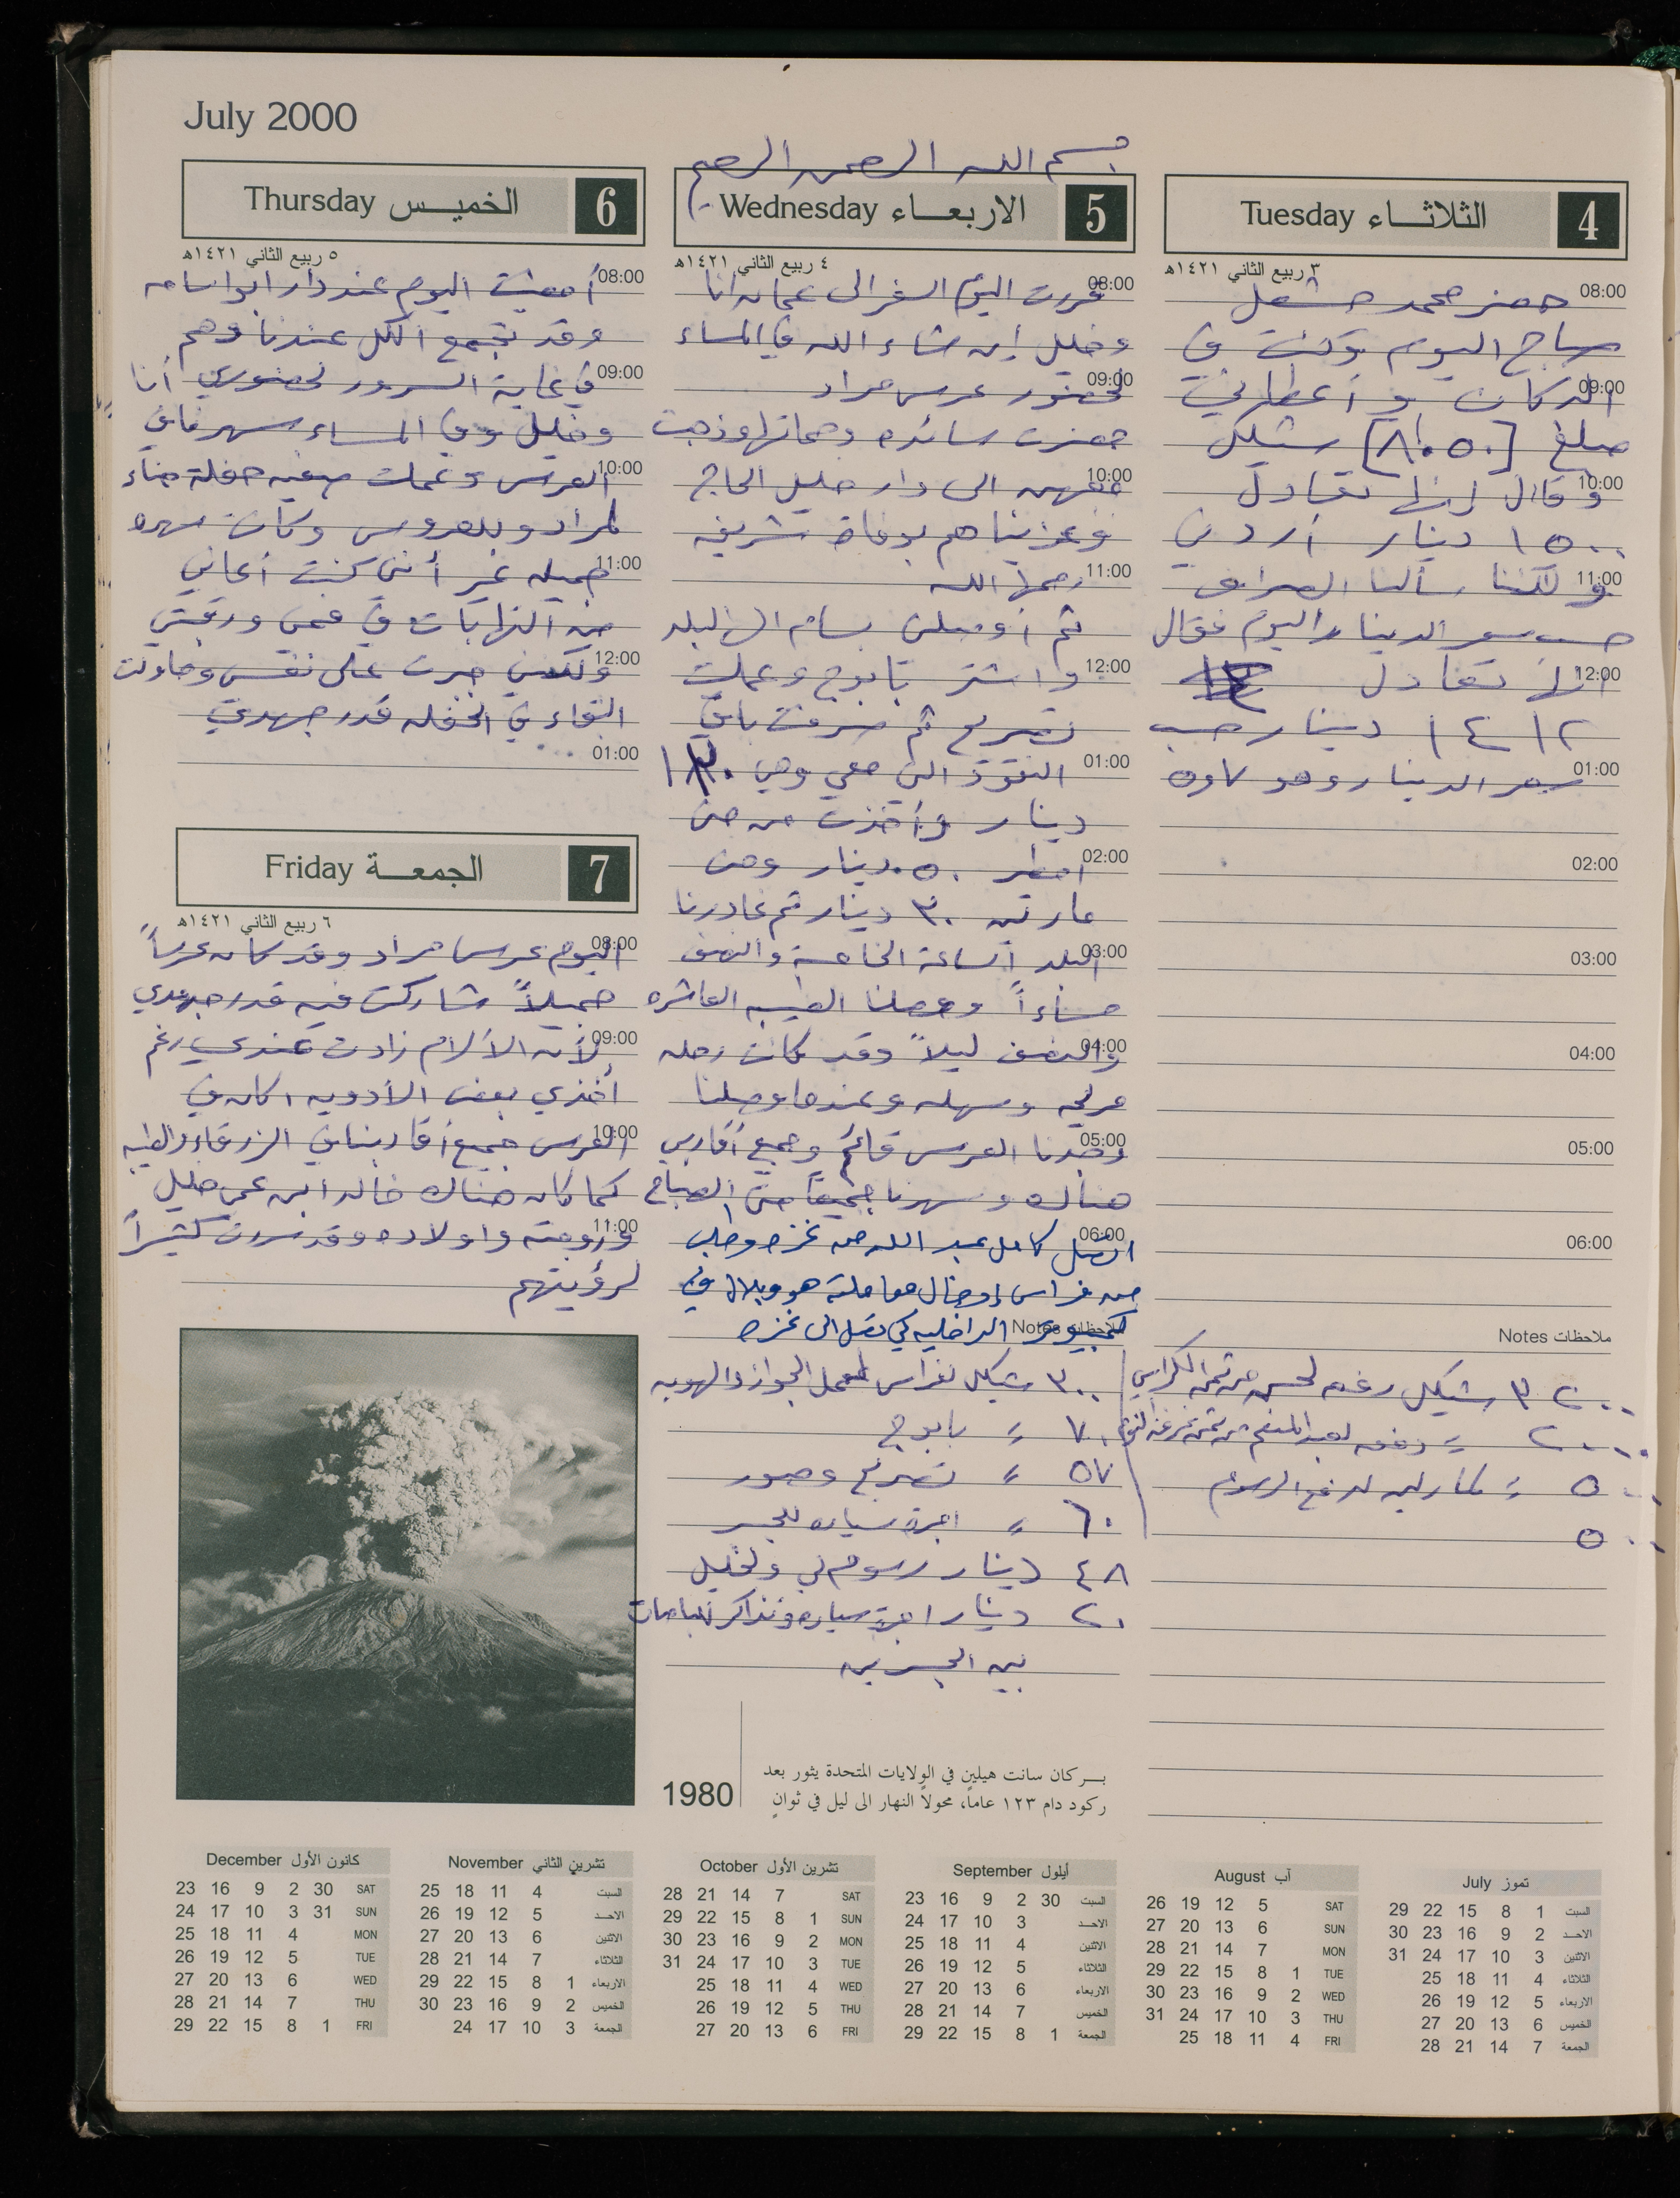 July 2000
بسم الله الرحمن الرحيم
4 الثلاثاء Tuesday
٣ ربيع الثاني ١٤٢١هـ
08:00
حضر محمد مشعل
صباح اليوم وكنت في
09:00
الدكان وأعطاني
مبلغ [٨٠٥٠] شيكل
10:00
وقال إنها تعادل
١٥٠٠ دينار أردني
11:00
ولكننا سألنا الصراف
حسب سعر الدينار اليوم فقال
12:00
انها تعادل
١٤١٢ دينار حسب
01:00
سعر الدينار وهو ٥٫٧
02:00
03:00
04:00
05:00
06:00
ملاحظات Notes
٣٢٠٠ شيكل دفعه لحسن من ثمن الكراسي
٢٠٠٠ = دفعه لعبد المنعم من ثمن غرفة النوم
٥٠٠ = لمارلين لدفع الرسوم
٥٠٠
5 الاربعاء Wednesday
٤ ربيع الثاني ١٤٢١هـ
08:00
قررت اليوم السفر الى عمان انا
وخليل إن شاء الله في المساء
09:00
لحضور عرس مراد
حضرت سائده وحماتها وذهبت
10:00
معهن الى دار خليل الحاج
وعزيناهم بوفاة شريفه
11:00
رحمها الله
ثم أوصلني بسام الى البلد
12:00
واشتر بابوج وعملت
تصريح ثم صرفت باقي
01:00
النقود التي معي وهي
دينار وأخذت من منى
02:00
امطير ٥٠ دينار ومن
مارتين ٣٠ دينار ثم غادرنا
03:00
البلد الساعة الخامسة والنصف
مساءاً ووصلنا الطيبه العاشره
04:00
والنصف ليلاً وقد كانت رحله
مريحه وسهله وعندما وصلنا
05:00
وجدنا العرس قائم وجميع أقاربي
هناك وسهرنا جميعاً حتى الصباح
06:00
اتصل كامل عبد الله من غزه وطلب
من فراس إدخال معاملته هو وبلال في
ملاحظات Notes
كمبيوتر الداخليه كي تصل الى غزه
٣٠٠ شيكل لفراس لعمل الجواز والهويه
٧٠ = بابوج
٥٧ = تصريح وصور
٦٠ = اجرة سياره للجسر
٤٨ دينار رسوم لي ولخليل
٢٠ دينار اجرة سياره وتذاكر للباصات
بين الجسرين
6 الخميس Thursday
٥ ربيع الثاني ١٤٢١هـ
08:00
أمضيت اليوم عند دار ابو اسامه
وقد تجمع الكل عندنا وهم
09:00
في غاية السرور لحضوري أنا
وخليل وفي المساء سهرنا في
10:00
العرس وعملت حفلة حناء
لمراد وللعروس وكانت سهره
11:00
جميله غير أنني كنت أعاني
من التهابات في فمي ورقبتي
12:00
ولكنني جبرت على نفسي وحاولت
البقاء في الحفله قدر جهدي
01:00
7 الجمعة Friday
٦ ربيع الثاني ١٤٢١هـ
08:00
اليوم عرس مراد وقد كان عرساً
جميلاً شاركت فيه قدر جهدي
09:00
لأن الآلام زادت عندي رغم
أخذي بعض الأدويه وكان في
10:00
العرس جميع أقاربنا في الزرقاء والطيبه
كما كان هناك خالد ابن عمي خليل
11:00
وزوجته واولاده وقد سررت كثيراً
لرؤيتهم
1980
بركان سانت هيلين في الولايات المتحدة يثور بعد
ركود دام ١٢٣ عاماً، محولاً النهار الى ليل في ثوانٍ
تموز July
السبت 1 8 15 22 29
الاحد 2 9 16 23 30
الاثنين 3 10 17 24 31
الثلاثاء 4 11 18 25
الاربعاء 5 12 19 26
الخميس 6 13 20 27
الجمعة 7 14 21 28
آب August
SAT 5 12 19 26
SUN 6 13 20 27
MON 7 14 21 28
TUE 1 8 15 22 29
WED 2 9 16 23 30
THU 3 10 17 24 31
FRI 4 11 18 25
أيلول September
السبت 30 2 9 16 23
الاحد 3 10 17 24
الاثنين 4 11 18 25
الثلاثاء 5 12 19 26
الاربعاء 6 13 20 27
الخميس 7 14 21 28
الجمعة 1 8 15 22 29
تشرين الأول October
SAT 7 14 21 28
SUN 1 8 15 22 29
MON 2 9 16 23 30
TUE 3 10 17 24 31
WED 4 11 18 25
THU 5 12 19 26
FRI 6 13 20 27
تشرين الثاني November
السبت 4 11 18 25
الاحد 5 12 19 26
الاثنين 6 13 20 27
الثلاثاء 7 14 21 28
الاربعاء 1 8 15 22 29
الخميس 2 9 16 23 30
الجمعة 3 10 17 24
كانون الأول December
SAT 30 2 9 16 23
SUN 31 3 10 17 24
MON 4 11 18 25
TUE 5 12 19 26
WED 6 13 20 27
THU 7 14 21 28
FRI 1 8 15 22 29